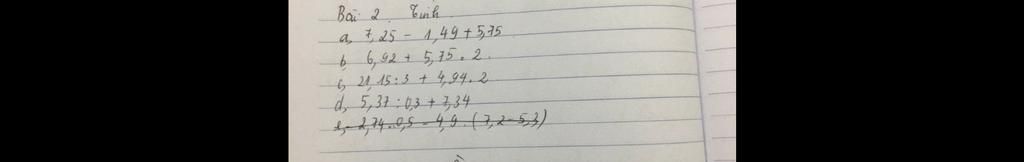 Bài 2. Tính
a, 7,25 - 1,49 + 5,75
b, 6,92 + 5,75 . 2
c, 21,15 : 3 + 4,94 . 2
d, 5,37 : 0,3 + 7,34
e, 2,74 . 0,5 - 4,9 . (7,2 - 5,3)